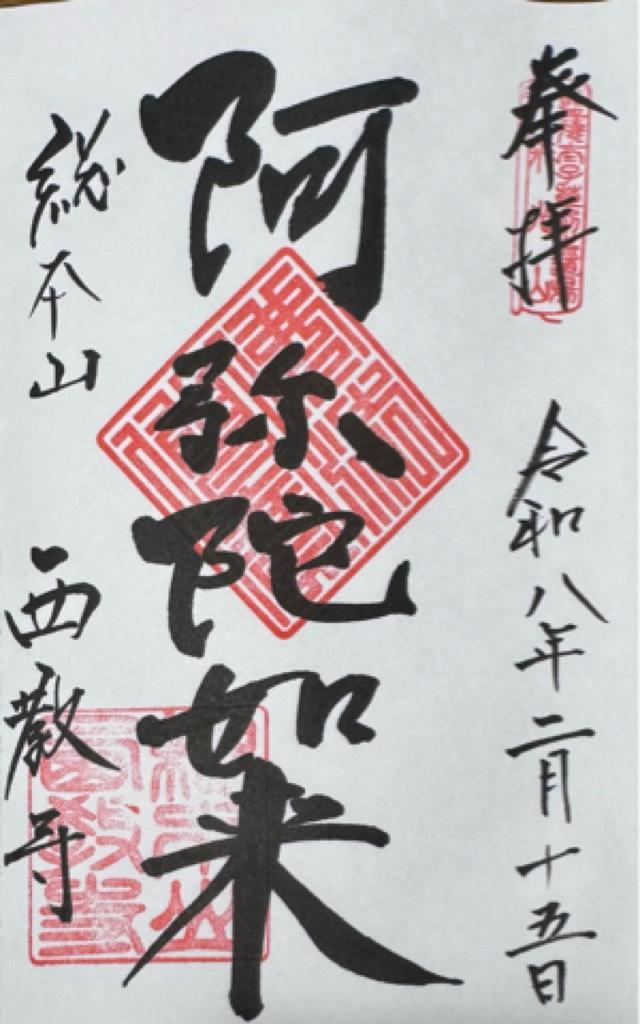 奉拝
令和八年二月十五日
阿弥陀如来
総本山
西教寺